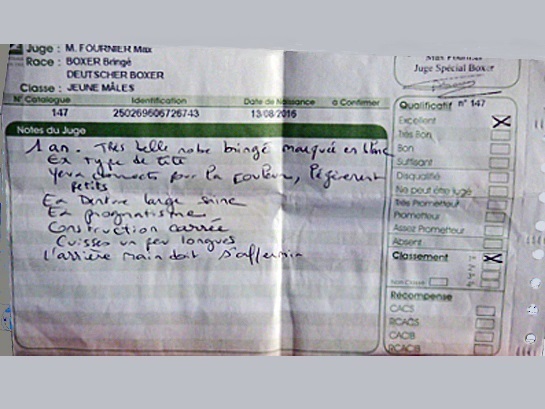 Juge : M. FOURNIER Max
Race : BOXER Bringé
DEUTSCHER BOXER
Classe : JEUNE MÂLES
N° Catalogue Identification Date de Naissance à Confirmer
147 250269606726743 13/08/2016
Notes du Juge
1 an. Très belle robe bringé marquée en blanc
Ex type de tête
Yeux corrects par la couleur, légèrement
petits
Ex Denture large saine
Ex prognatisme
Construction carrée
Cuisses un peu longues
L'arrière main doit s'affermir
Max Fournier
Juge Spécial Boxer
Qualificatif n° 147
Excellent X
Très Bon
Bon
Suffisant
Disqualifié
Ne peut être jugé
Très Prometteur
Prometteur
Assez Prometteur
Absent
Classement X
Non Classé
Récompense
CACS
RCACS
CACIB
RCACIB